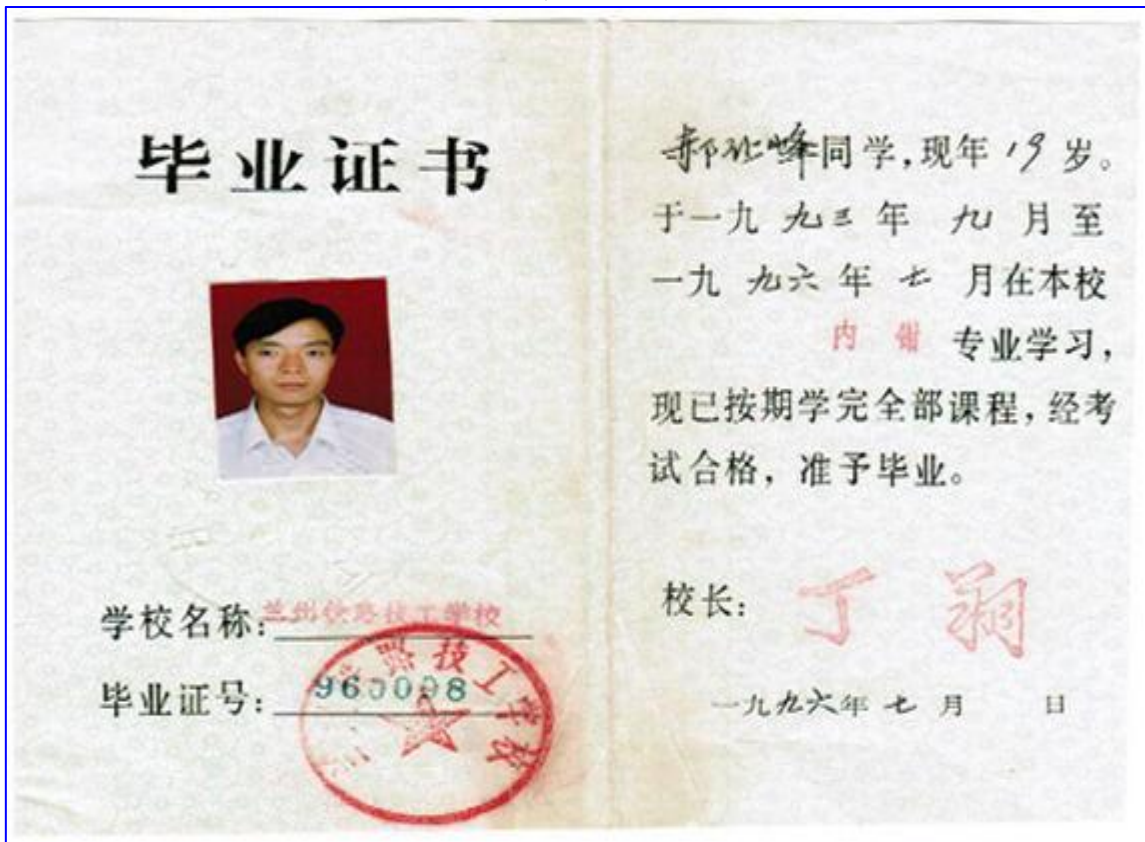 毕业证书
学校名称：兰州铁路技工学校
毕业证号：960008
路技工学校
郝 峰同学，现年19岁。
于一九九三年九月至
一九九六年七月在本校
内 专业学习，
现已按期学完全部课程，经考
试合格，准予毕业。
校长：丁翔
一九九六年七月 日